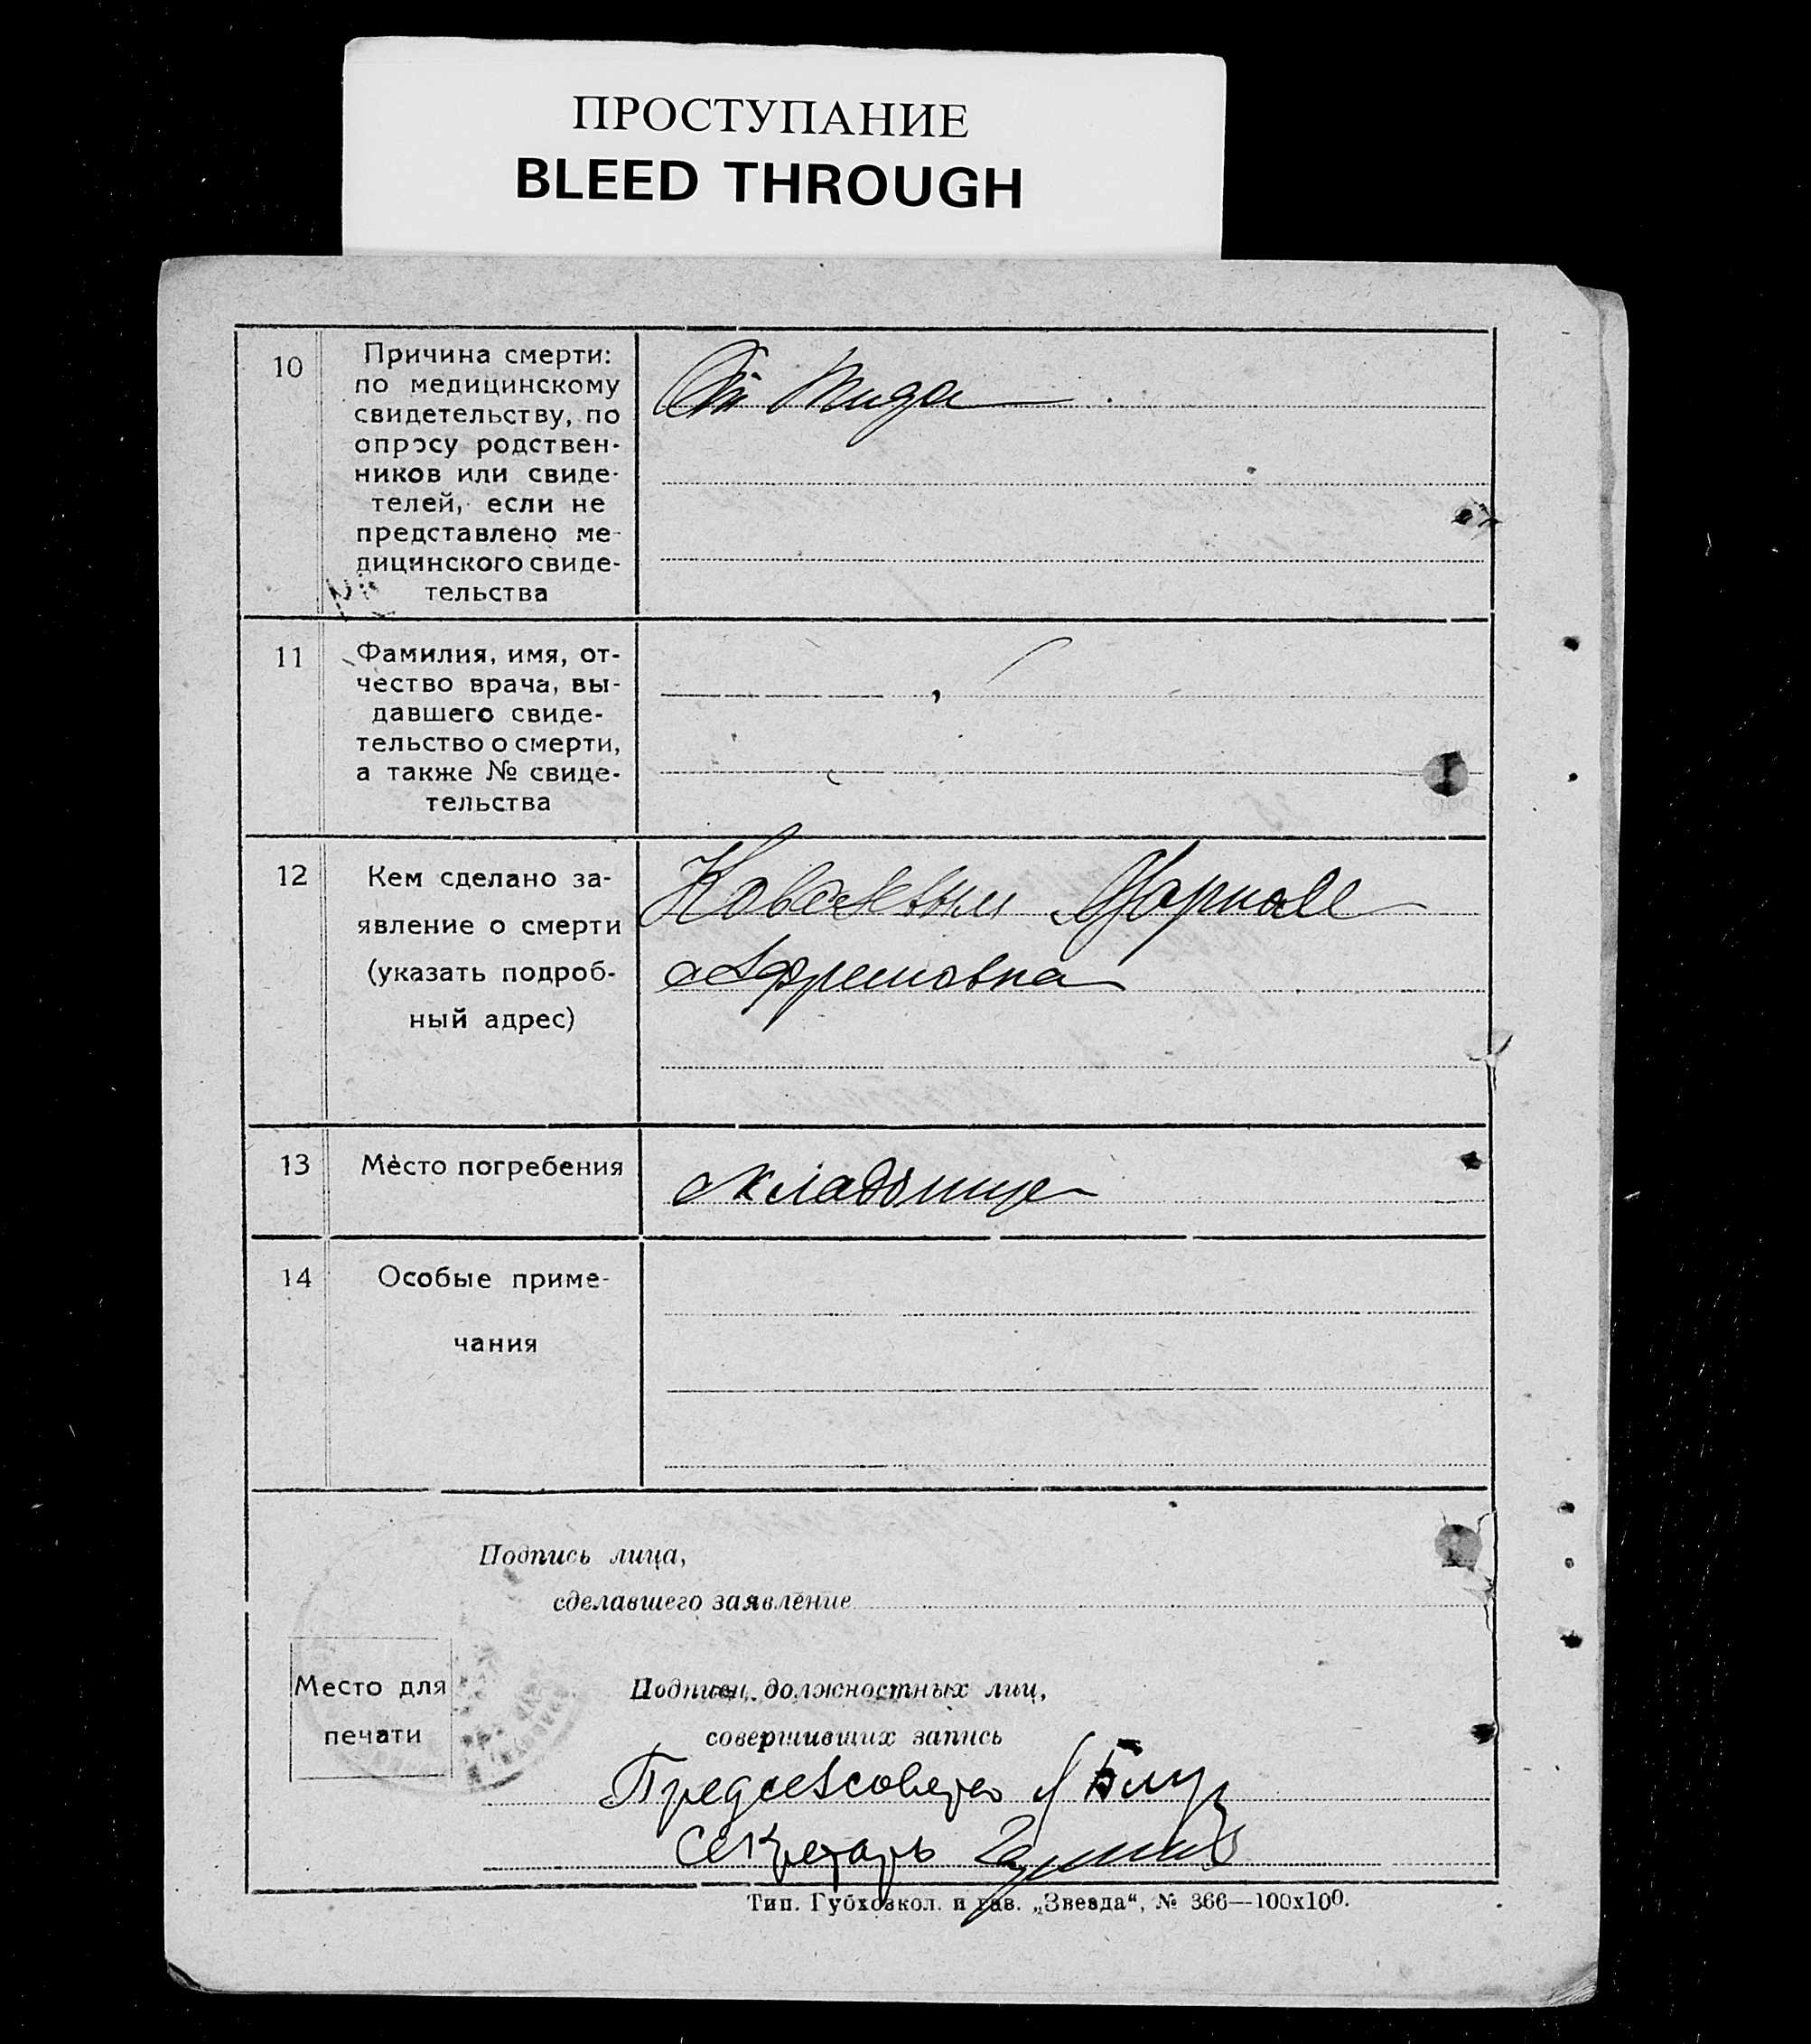 ПРОСТУПАНИЕ
BLEED THROUGH
10
Причина смерти:
по медицинскому
свидетельству, по
опросу родствен-
ников или свиде-
телей, если не
представлено ме-
дицинского свиде-
тельства
От
11
Фамилия, имя, от-
чество врача, вы-
давшего свиде-
тельство о смерти,
а также № свиде-
тельства
12
Кем сделано за-
явление о смерти
(указать подроб-
ный адрес)
13
Место погребения
кладбище
14
Особые приме-
чания
Подпись лица,
сделавшего заявление
Место для
печати
Подписи должностных лиц,
совершивших запись
Предсельсовета
Секретарь
Тип. Губхозкол. и газ. „Звезда“, № 366—100х100.